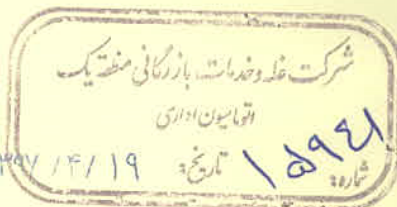 شرکت غله و خدمات بازرگانی منطقه یک
اتوماسیون اداری
شماره: ۱۵۹۴۱ تاریخ: ۳۹۷/۴/۱۹